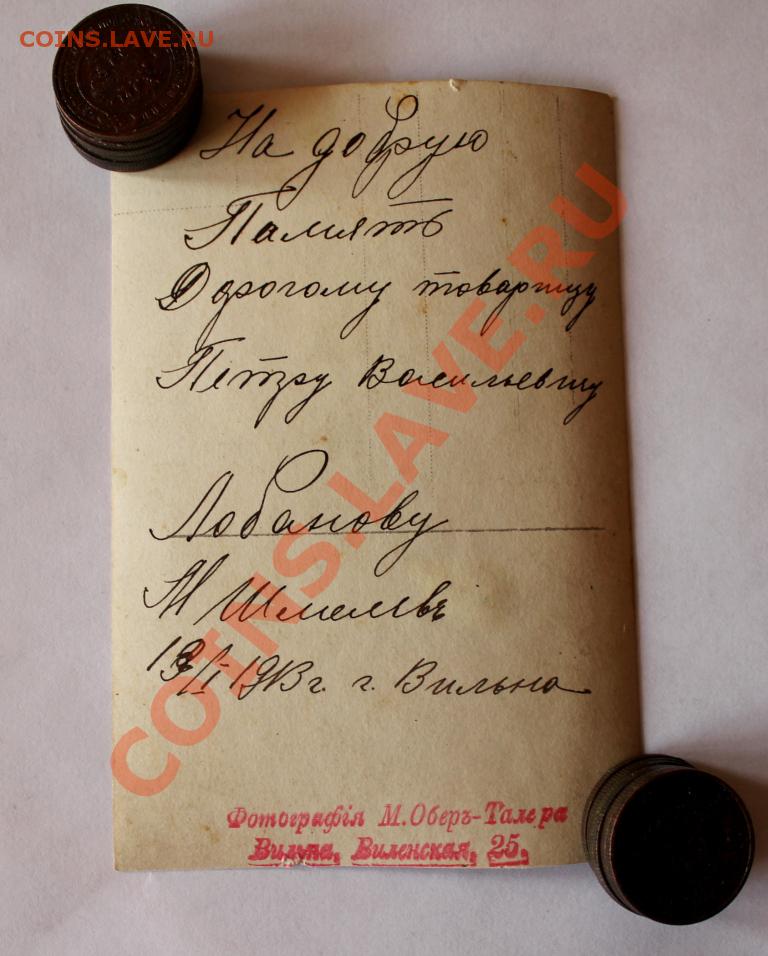 COINS.LAVE.RU
На добрую
Память
Дорогому товарищу
Петру Васильевичу
Лобанову
Шмелевъ
1913 г. г. Вильна
Фотографія М. Оберъ-Талера
Вильна, Виленская, 25.
COINS.LAVE.RU